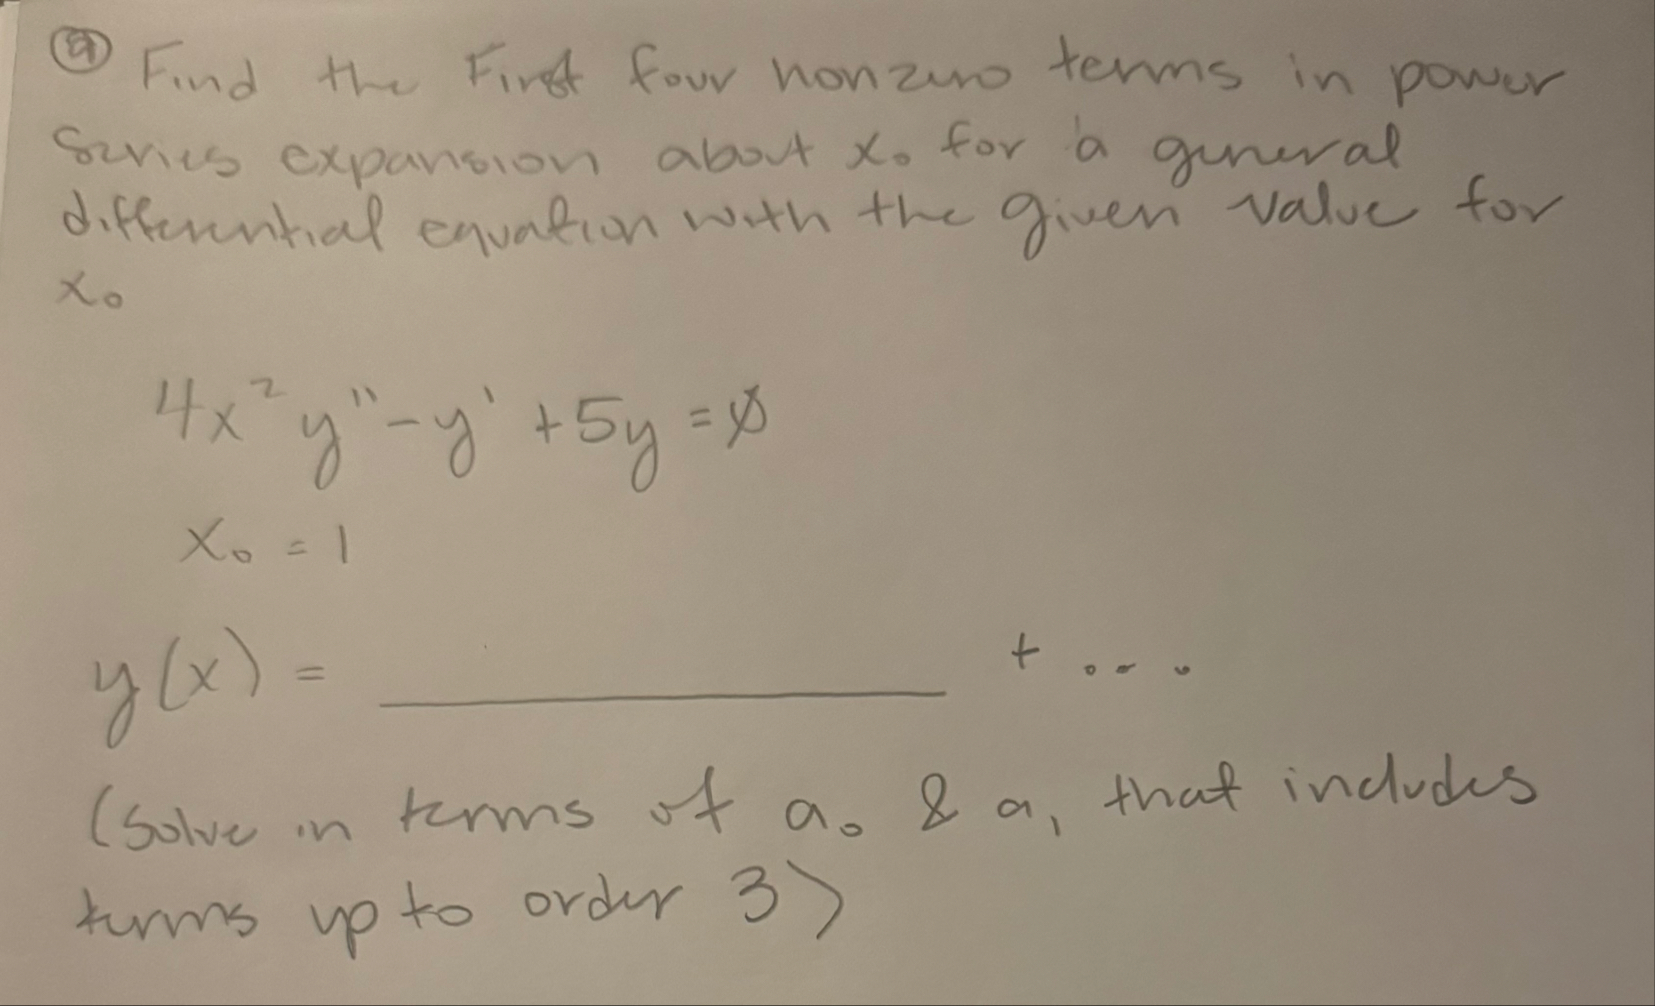 Find the First four nonzero terms in power
series expansion about x₀ for a general
differential equation with the given value for
x₀
4x² y'' - y' + 5y = 0
x₀ = 1
y(x) = __________ + ....
(solve in terms of a₀ & a₁ that includes
terms up to order 3)